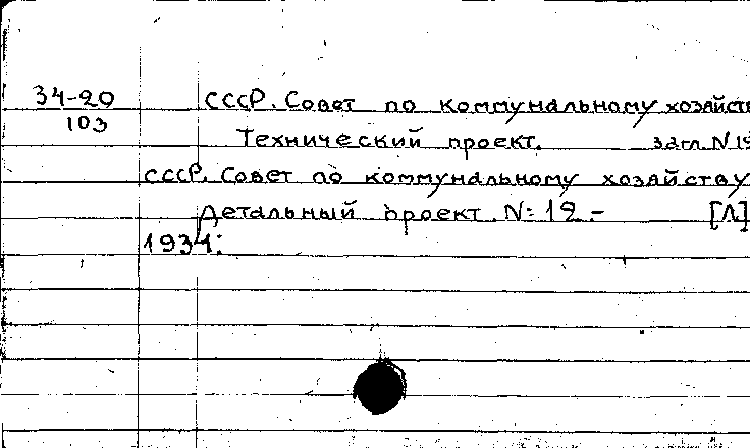 34-20
103
СССР. Совет по коммунальному хозяйств
Технический проект. загл. N 19
СССР. Совет по коммунальному хозяйству
Детальный проект. N: 12.- [Л]
1934: